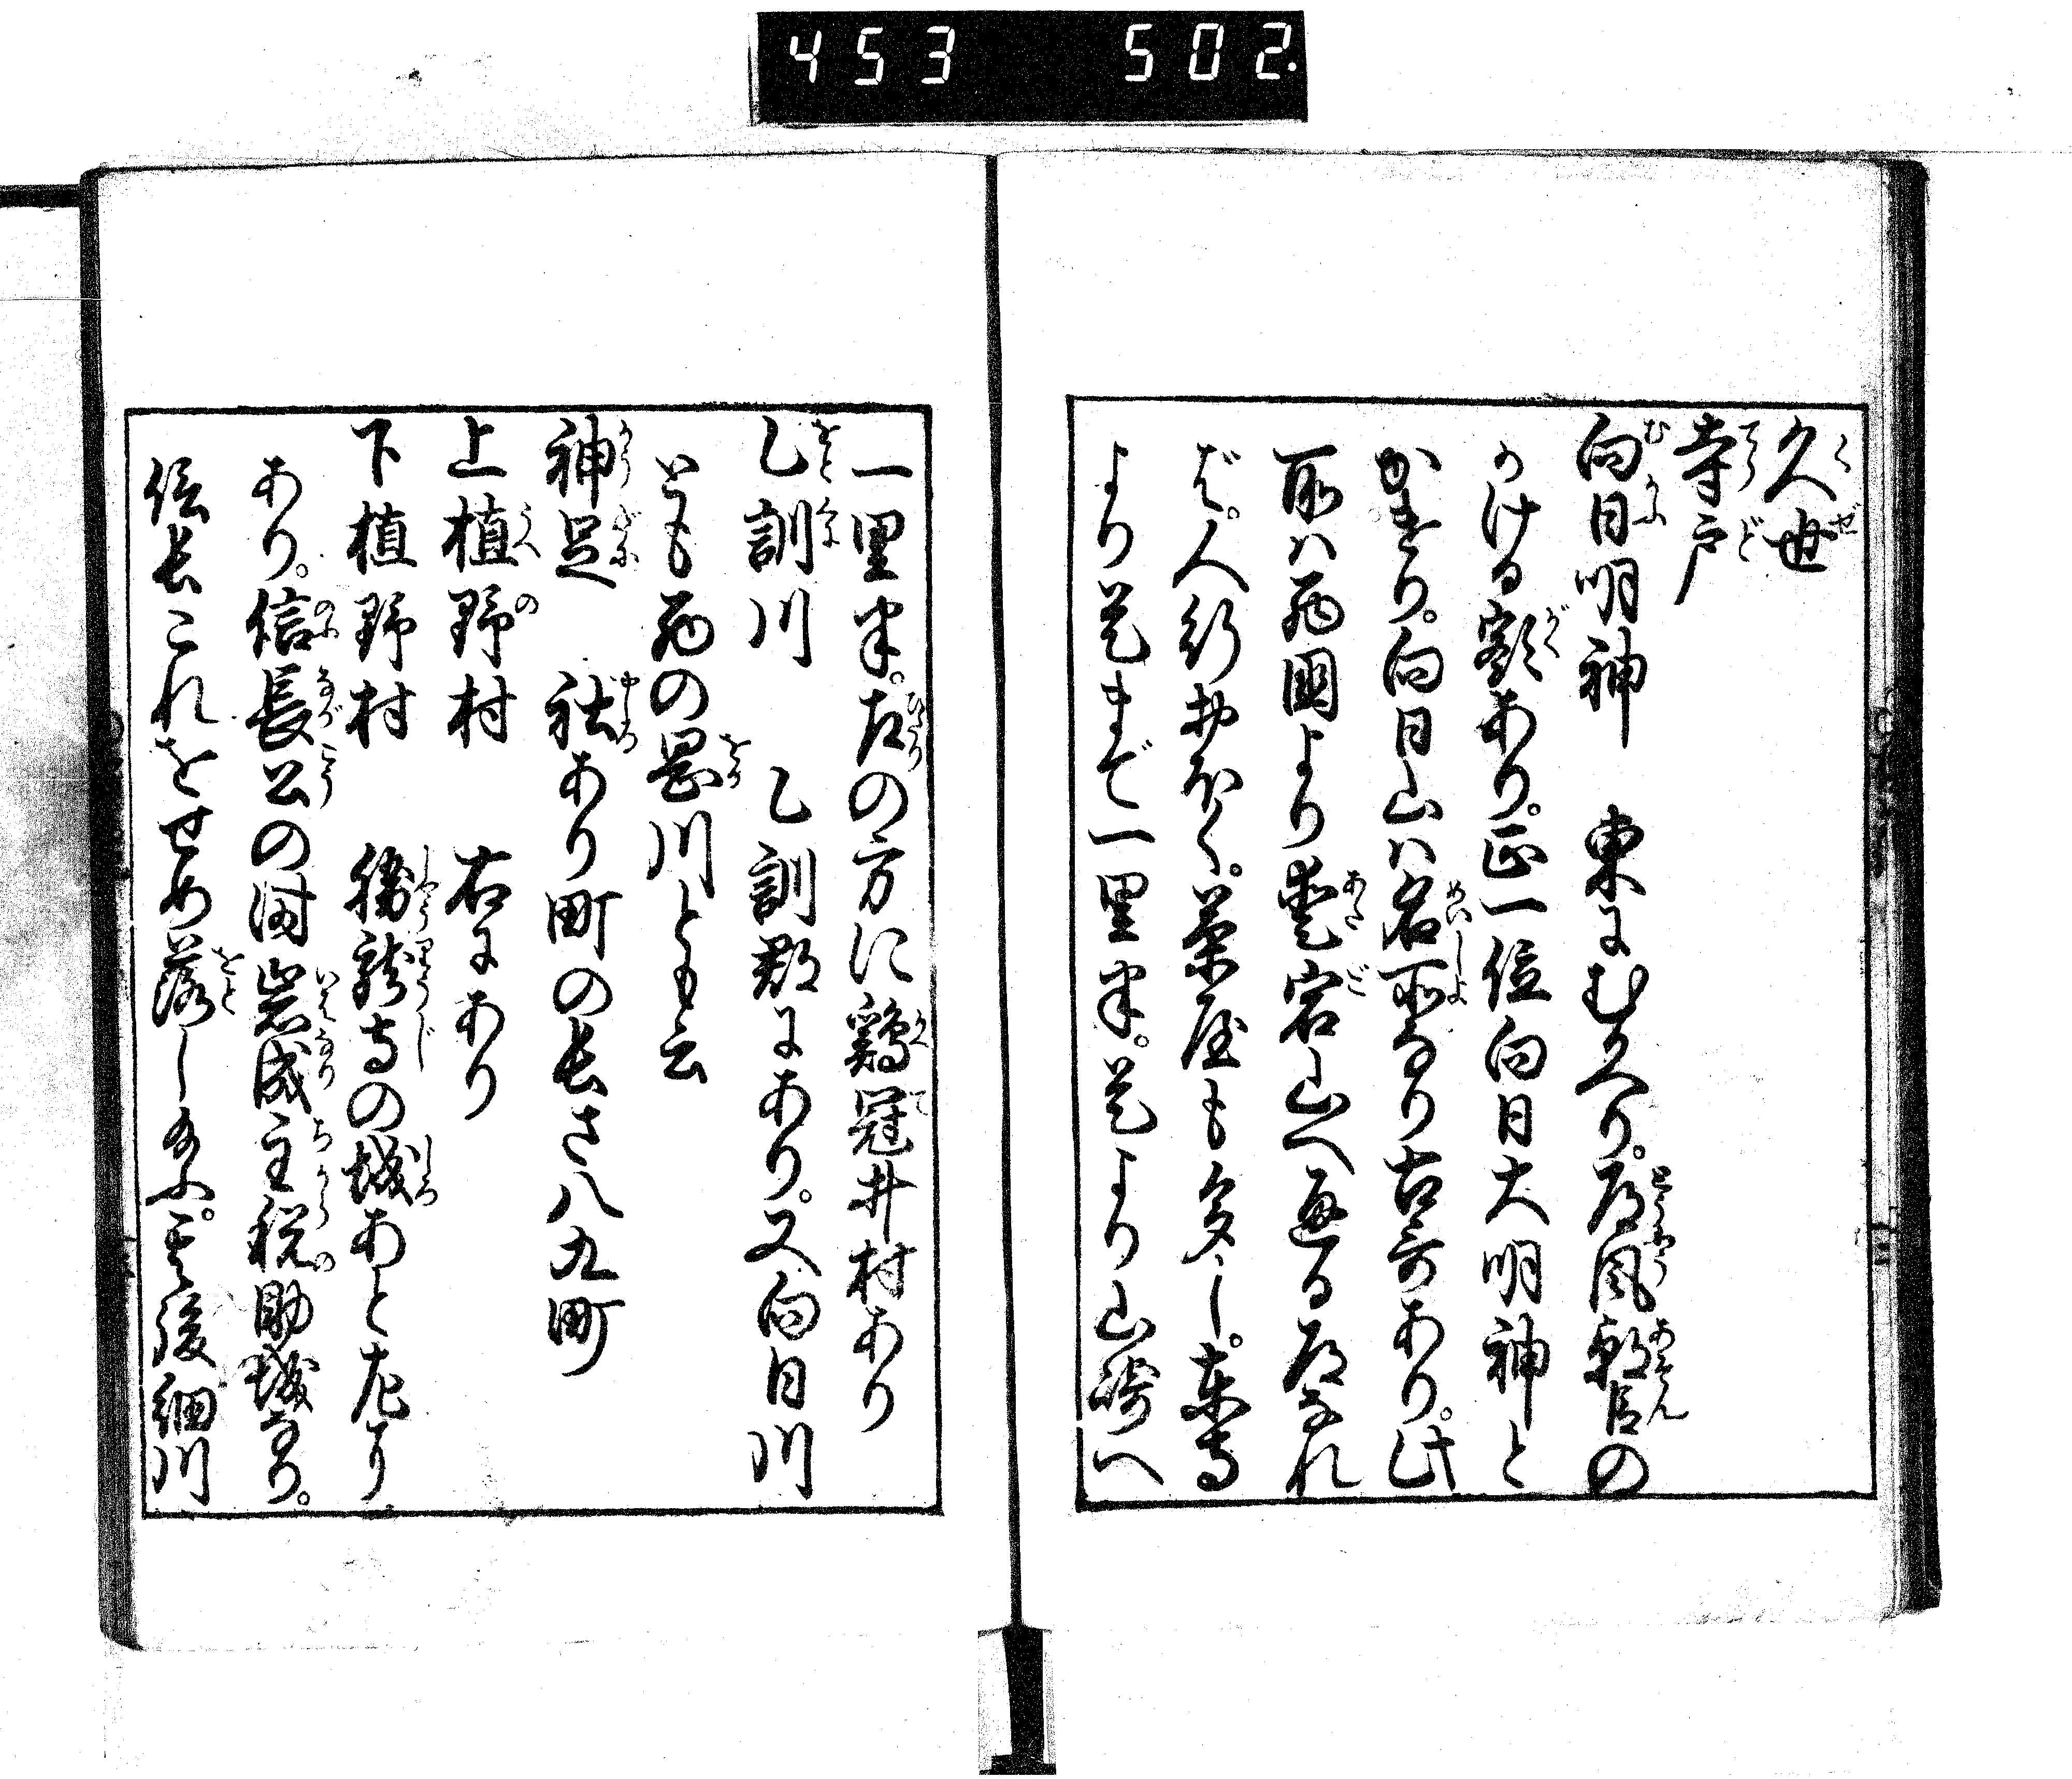 453 502.
久世
寺戸
向日明神 東にむかへり。道風朝臣の
かける額あり。正一位向日大明神と
かけり。向日山ハ名所なり古哥あり。此
所ハ西国より愛宕山へ通る道なれ
ば。人行おほく。茶屋も多し。東寺
より是まで一里半。是より山崎へ
一里半。左の方に鶏冠井村あり
乙訓川 乙訓郡にあり。又向日川
とも西の岡川とも云
神足 社あり町の長さ八九町
上植野村 右にあり
下植野村 勝龍寺の城あと左に
あり。信長公の時岩成主税助城なり。
信長これをせめ落し給ふ。其後細川